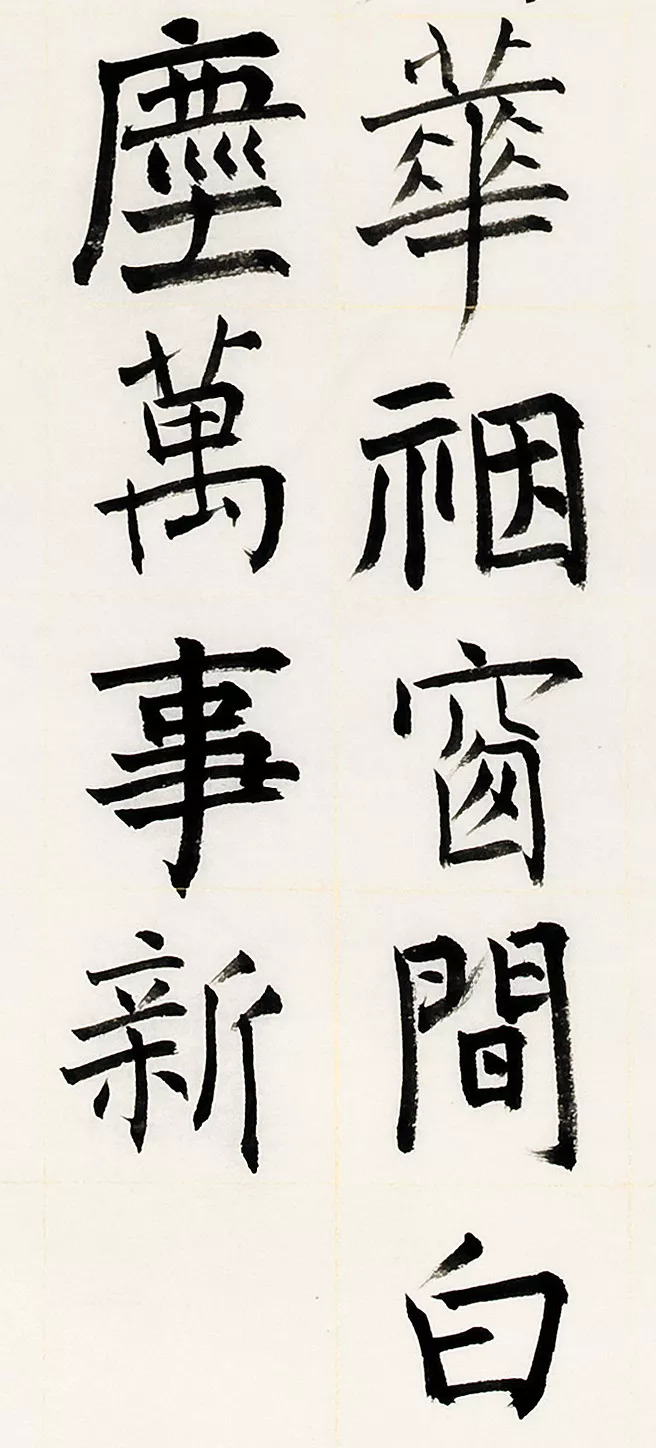 華裀窗間白
塵萬事新